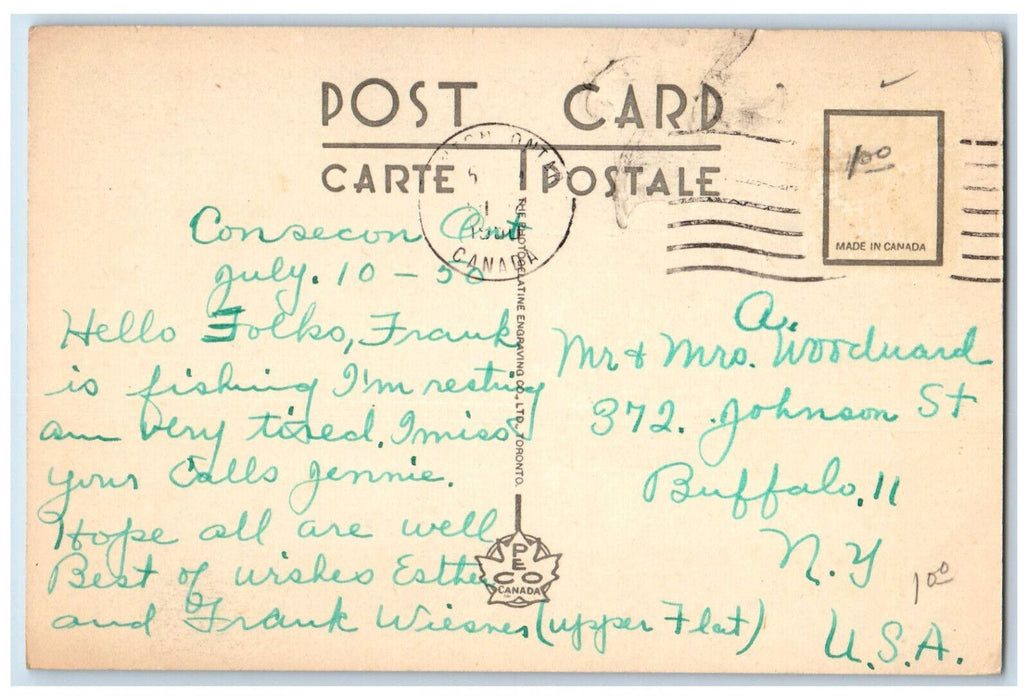 POST CARD
CARTE POSTALE
ONT
1
CANADA
1 00
MADE IN CANADA
THE PHOTOGELATINE ENGRAVING CO., LTD., TORONTO.
PECO
CANADA
Consecon Ont
July. 10 - 50
Hello Folks, Frank
is fishing I'm resting
am very tired. I miss
your Calls Jennie.
Hope all are well
Best of wishes Esther
and Frank Wiesner (upper Flat)
A.
Mr & Mrs. Woodward
372. Johnson St
Buffalo, 11
N.Y
U.S.A.
1 00